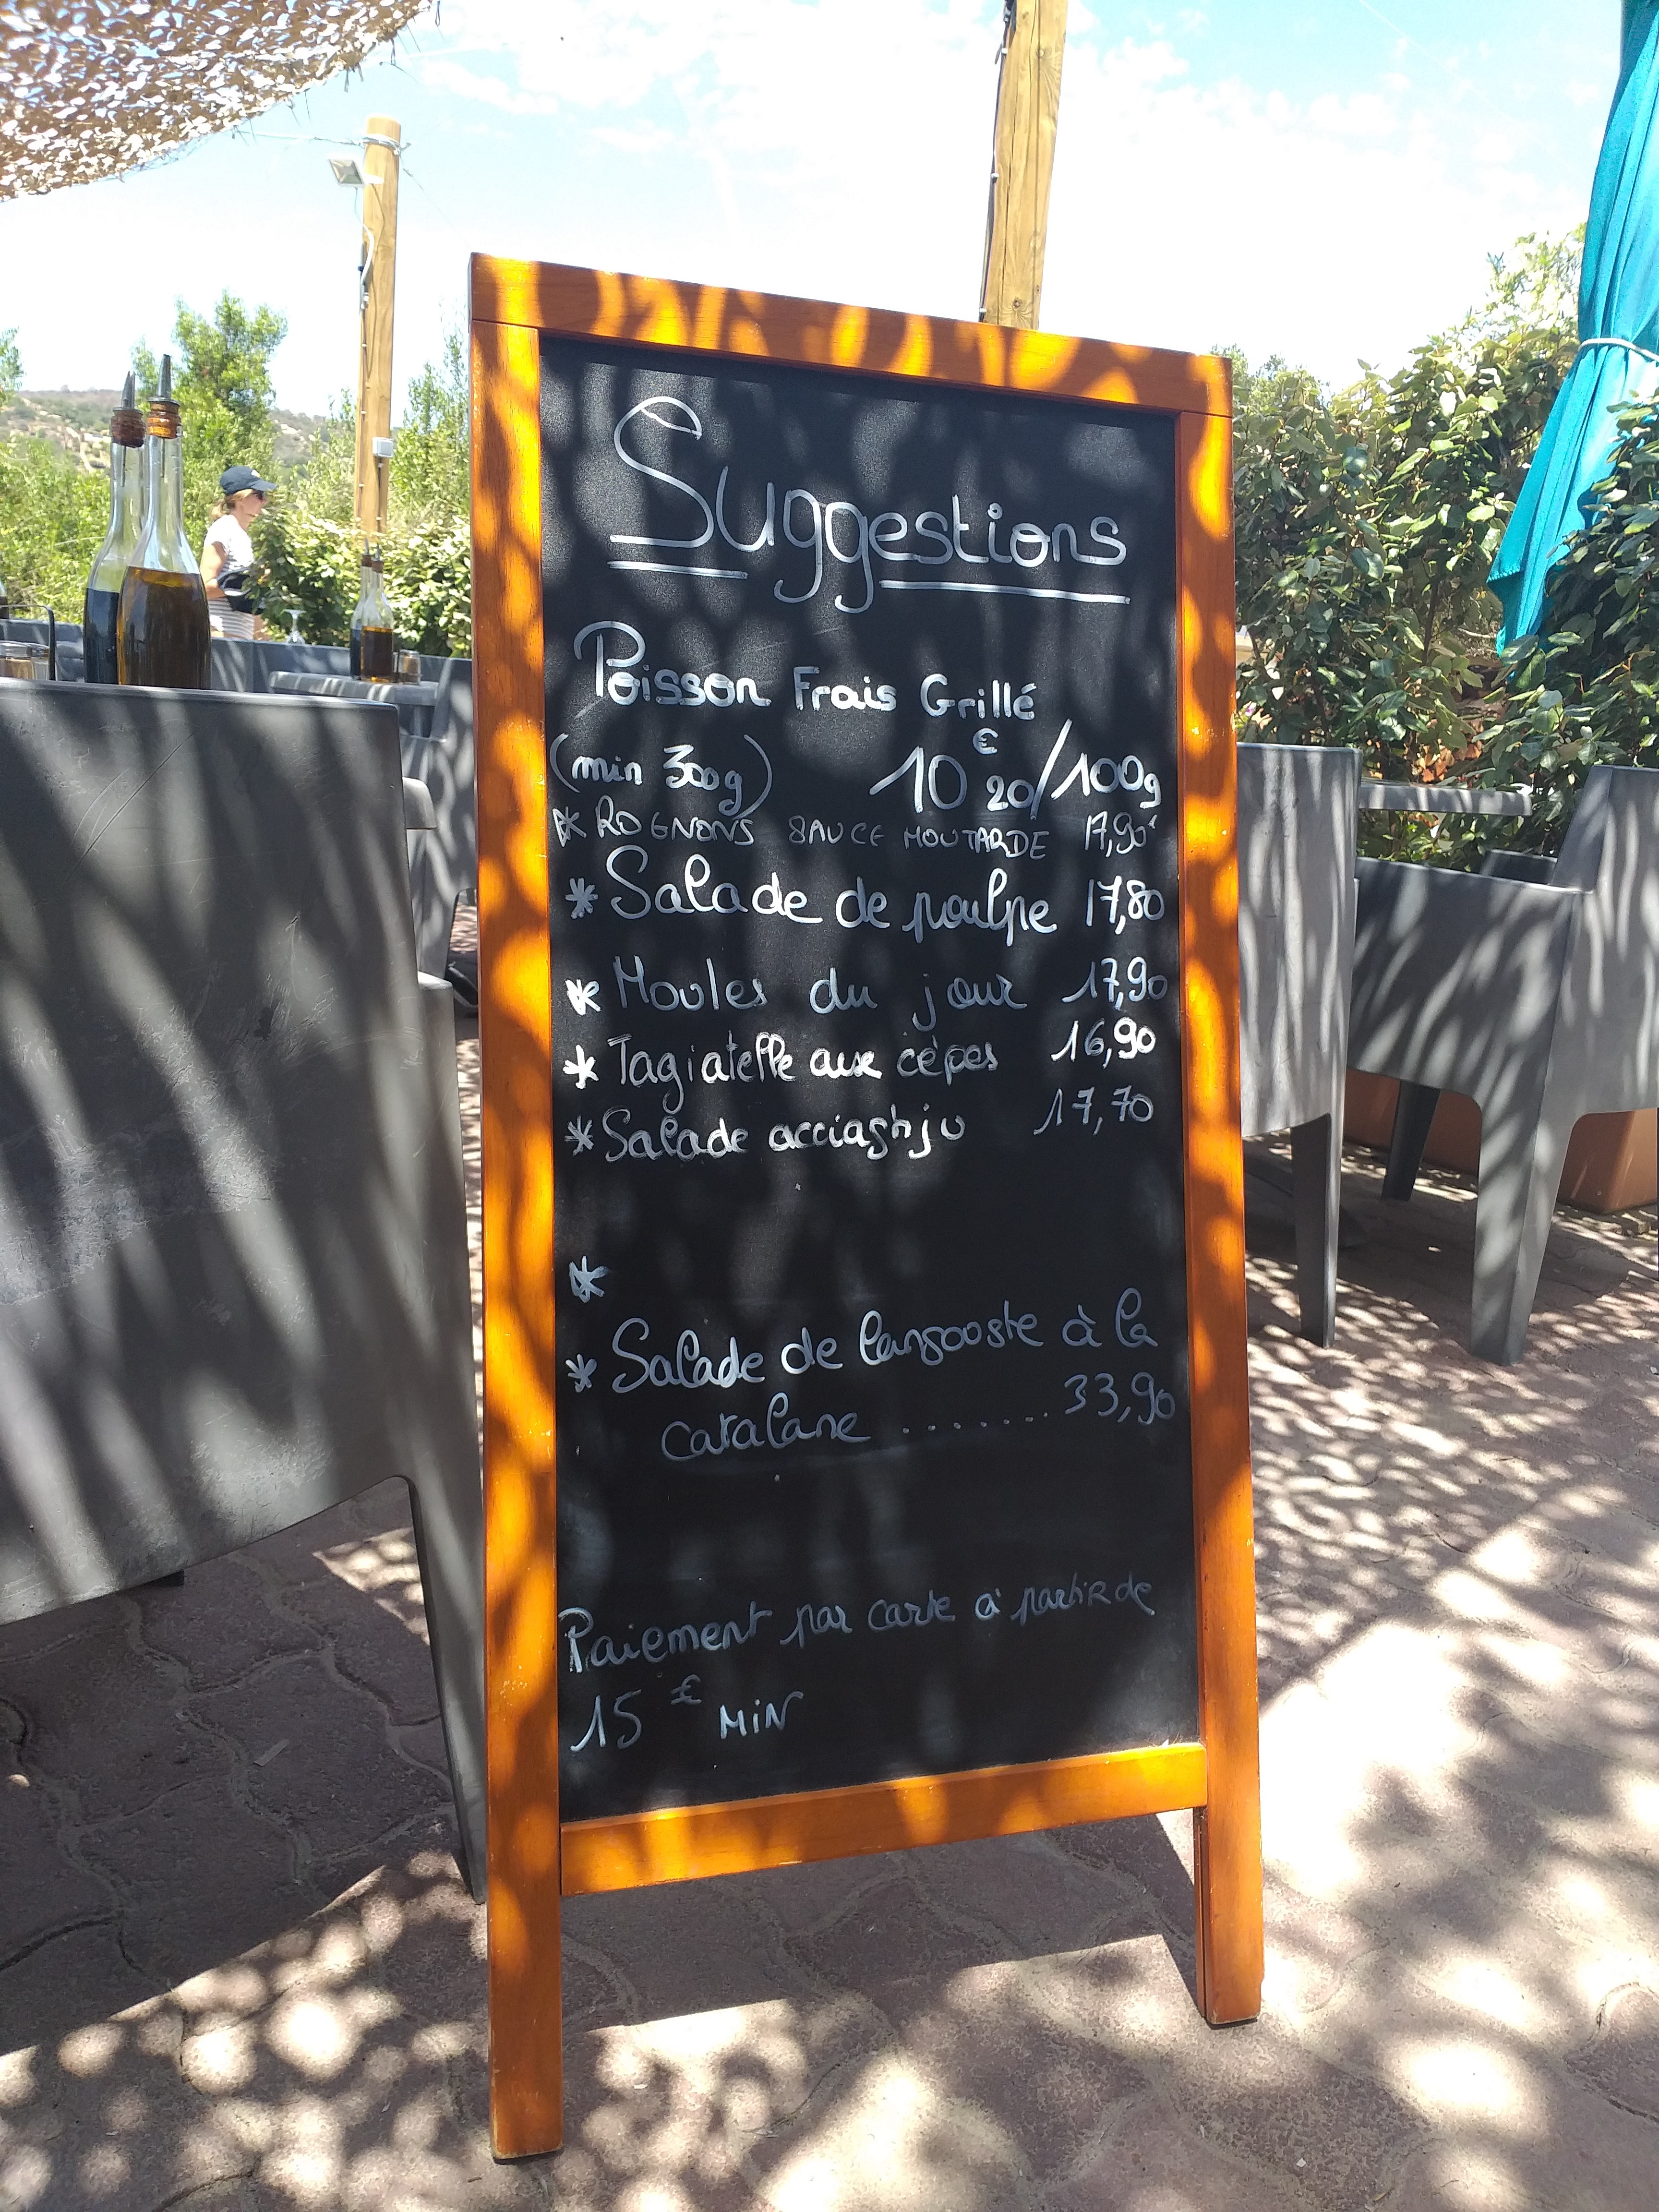 Suggestions
Poisson Frais Grillé
(min 300g) 10€20/100g
* ROGNONS SAUCE MOUTARDE 17,90€
* Salade de poulpe 17,80
* Moules du jour 17,90
* Tagiatelle aux cèpes 16,90
* Salade acciaghju 17,70
*
* Salade de langouste à la
catalane ........ 33,90
Paiement par carte à partir de
15€ MiN